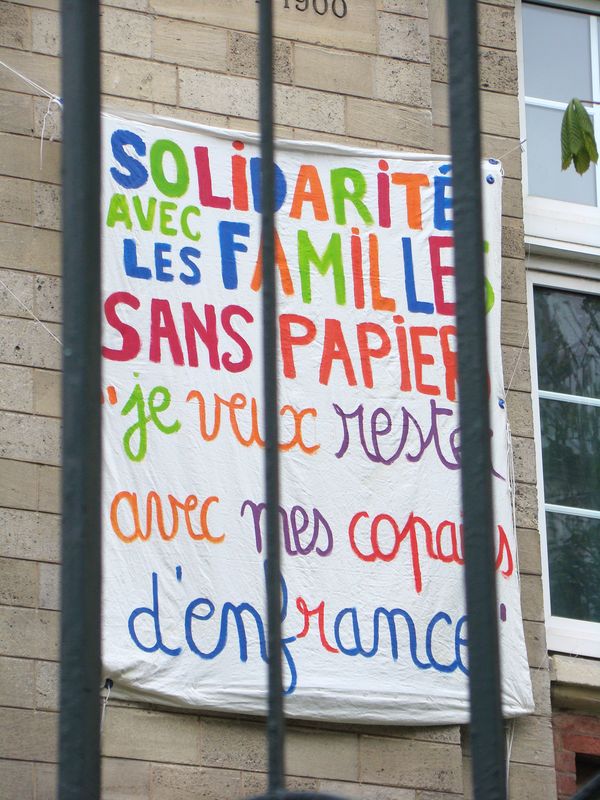 1900
SOLIDARITÉ
AVEC
LES FAMILLES
SANS PAPIERS
"je veux rester
avec mes copains
d'enfrance"